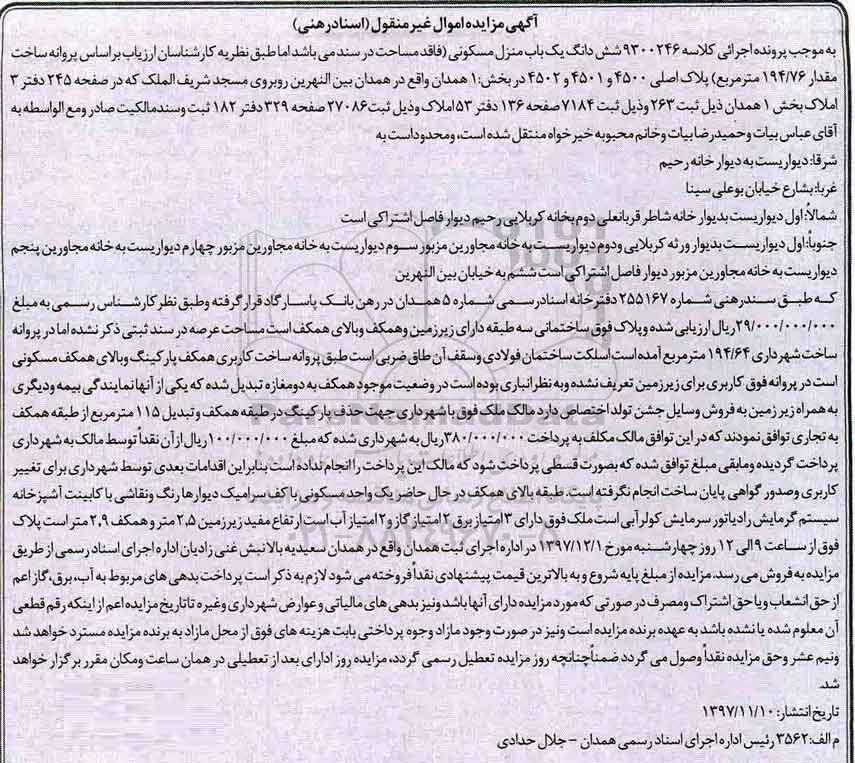 آگهی مزایده اموال غیر منقول (اسناد رهنی)
به موجب پرونده اجرائی کلاسه ۹۳۰۰۲۴۶ شش دانگ یک باب منزل مسکونی (فاقد مساحت در سند می باشد اما طبق نظریه کارشناسان ارزیاب بر اساس پروانه ساخت
مقدار ۱۹۴/۷۶ مترمربع) پلاک اصلی ۴۵۰۰ و ۴۵۰۱ و ۴۵۰۲ در بخش:۱ همدان واقع در همدان بین النهرین روبروی مسجد شریف الملک که در صفحه ۲۴۵ دفتر ۳
املاک بخش ۱ همدان ذیل ثبت ۲۶۳ وذیل ثبت ۷۱۸۴ صفحه ۱۳۶ دفتر ۵۳ املاک وذیل ثبت ۲۷۰۸۶ صفحه ۳۲۹ دفتر ۱۸۲ ثبت وسند مالکیت صادر ومع الواسطه به
آقای عباس بیات وحمیدرضا بیات وخانم محبوبه خیرخواه منتقل شده است، ومحدود است به
شرقا: دیواریست به دیوار خانه رحیم
غربا: بشارع خیابان بوعلی سینا
شمالاً: اول دیواریست بدیوار خانه شاطر قربانعلی دوم بخانه کربلایی رحیم دیوار فاصل اشتراکی است
جنوباً: اول دیواریست بدیوار ورثه کربلایی ودوم دیواریست به خانه مجاورین مزبور سوم دیواریست به خانه مجاورین مزبور چهارم دیواریست به خانه مجاورین پنجم
دیواریست به خانه مجاورین مزبور دیوار فاصل اشتراکی است ششم به خیابان بین النهرین
که طبق سند رهنی شماره ۲۵۵۱۶۷ دفترخانه اسناد رسمی شماره ۵ همدان در رهن بانک پاسارگاد قرار گرفته وطبق نظر کارشناس رسمی به مبلغ
۲۹/۰۰۰/۰۰۰/۰۰۰ ریال ارزیابی شده وپلاک فوق ساختمانی سه طبقه دارای زیرزمین وهمکف وبالای همکف است مساحت عرصه در سند ثبتی ذکر نشده اما در پروانه
ساخت شهرداری ۱۹۴/۶۴ مترمربع آمده است اسلکت ساختمان فولادی وسقف آن طاق ضربی است طبق پروانه ساخت کاربری همکف پارکینگ وبالای همکف مسکونی
است در پروانه فوق کاربری برای زیرزمین تعریف نشده وبه نظر انباری بوده است در وضعیت موجود همکف به دو مغازه تبدیل شده که یکی از آنها نمایندگی بیمه ودیگری
به همراه زیرزمین به فروش وسایل جشن تولد اختصاص دارد مالک ملک فوق با شهرداری جهت حذف پارکینگ در طبقه همکف وتبدیل ۱۱۵ مترمربع از طبقه همکف
به تجاری توافق نمودند که در این توافق مالک مکلف به پرداخت ۳۸۰/۰۰۰/۰۰۰ ریال به شهرداری شده که مبلغ ۱۰۰/۰۰۰/۰۰۰ ریال از آن نقداً توسط مالک به شهرداری
پرداخت گردیده ومابقی مبلغ توافق شده که بصورت قسطی پرداخت شود که مالک این پرداخت را انجام نداده است بنابراین اقدامات بعدی توسط شهرداری برای تغییر
کاربری وصدور گواهی پایان ساخت انجام نگرفته است. طبقه بالای همکف در حال حاضر یک واحد مسکونی با کف سرامیک دیوارها رنگ ونقاشی با کابینت آشپزخانه
سیستم گرمایش رادیاتور سرمایش کولر آبی است ملک فوق دارای ۳ امتیاز برق ۲ امتیاز گاز و ۲ امتیاز آب است ارتفاع مفید زیرزمین ۲٫۵ متر و همکف ۲٫۹ متر است پلاک
فوق از ساعت ۹ الی ۱۲ روز چهارشنبه مورخ ۱۳۹۷/۱۲/۱ در اداره اجرای ثبت همدان واقع در همدان سعیدیه بالا نبش غنی زادیان اداره اجرای اسناد رسمی از طریق
مزایده به فروش می رسد. مزایده از مبلغ پایه شروع و به بالاترین قیمت پیشنهادی نقداً فروخته می شود لازم به ذکر است پرداخت بدهی های مربوط به آب، برق، گاز اعم
از حق انشعاب ویا حق اشتراک ومصرف در صورتی که مورد مزایده دارای آنها باشد ونیز بدهی های مالیاتی و عوارض شهرداری وغیره تا تاریخ مزایده اعم از اینکه رقم قطعی
آن معلوم شده یا نشده باشد به عهده برنده مزایده است ونیز در صورت وجود مازاد وجوه پرداختی بابت هزینه های فوق از محل مازاد به برنده مزایده مسترد خواهد شد
ونیم عشر وحق مزایده نقداً وصول می گردد ضمناً چنانچه روز مزایده تعطیل رسمی گردد، مزایده روز اداری بعد از تعطیلی در همان ساعت ومکان مقرر برگزار خواهد
شد.
تاریخ انتشار: ۱۳۹۷/۱۱/۱۰
م الف: ۳۵۶۲ رئیس اداره اجرای اسناد رسمی همدان - جلال حدادی
ParsNamadData